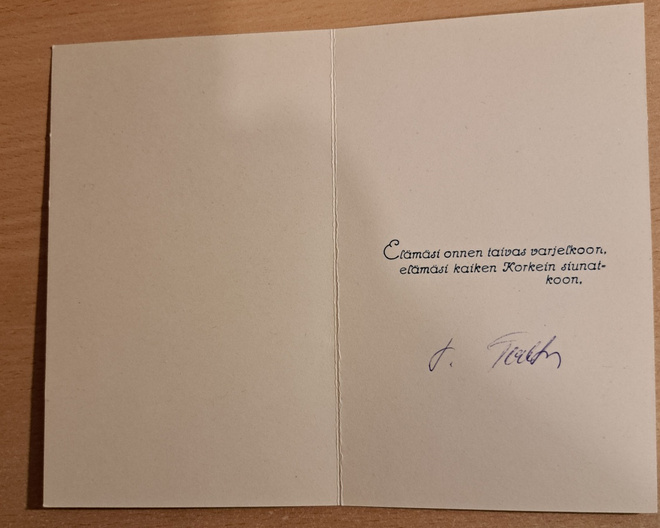 Elämäsi onnen taivas varjelkoon,
elämäsi kaiken Korkein siunat-
koon.